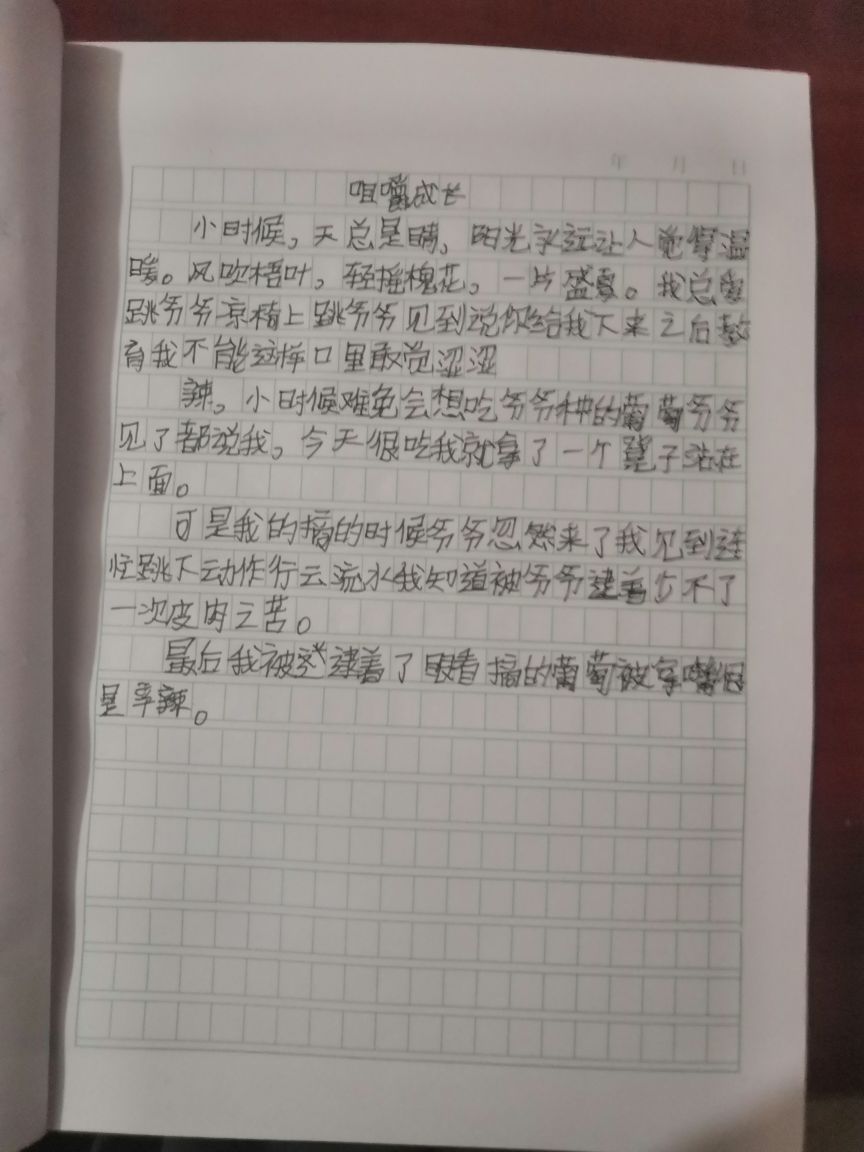 年 月 日
咀嚼成长
小时候，天总是晴，阳光永远让人觉得温
暖。风吹梧叶，轻摇槐花，一片盛夏。我总爱
跳爷爷凉椅上跳爷爷见到说你给我下来之后教
育我不能这样口里敢觉涩涩
辣。小时候难免会想吃爷爷种的葡萄爷爷
见了都说我。今天很吃我就拿了一个凳子站在
上面。
可是我的摘的时候爷爷忽然来了我见到连
忙跳下动作行云流水我知道被爷爷逮着少不了
一次皮肉之苦。
最后我被逮着了眼看摘的葡萄被
是辛辣。